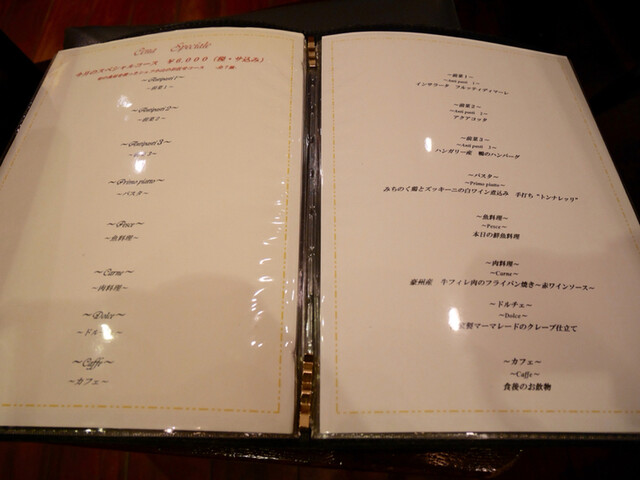 Cena Speciale
今月のスペシャルコース ¥6,000(税・サ込み)
~Antipasti 1~
~前菜1~
~Antipasti 2~
~前菜2~
~Antipasti 3~
~前菜3~
~Primo piatto~
~パスタ~
~Pesce~
~魚料理~
~Carne~
~肉料理~
~Dolce~
~ドルチェ~
~Caffe~
~カフェ~
~前菜1~
~Anti pasti 1~
インサラータ フルッティディマーレ
~前菜2~
~Anti pasti 2~
アクアコッタ
~前菜3~
~Anti pasti 3~
ハンガリー産 鴨のハンバーグ
~パスタ~
~Primo piatto~
みちのく鶏とズッキーニの白ワイン煮込み 手打ち"トンナレッリ"
~魚料理~
~Pesce~
本日の鮮魚料理
~肉料理~
~Carne~
豪州産 牛フィレ肉のフライパン焼き~赤ワインソース~
~ドルチェ~
~Dolce~
マーマレードのクレープ仕立て
~カフェ~
~Caffe~
食後のお飲物